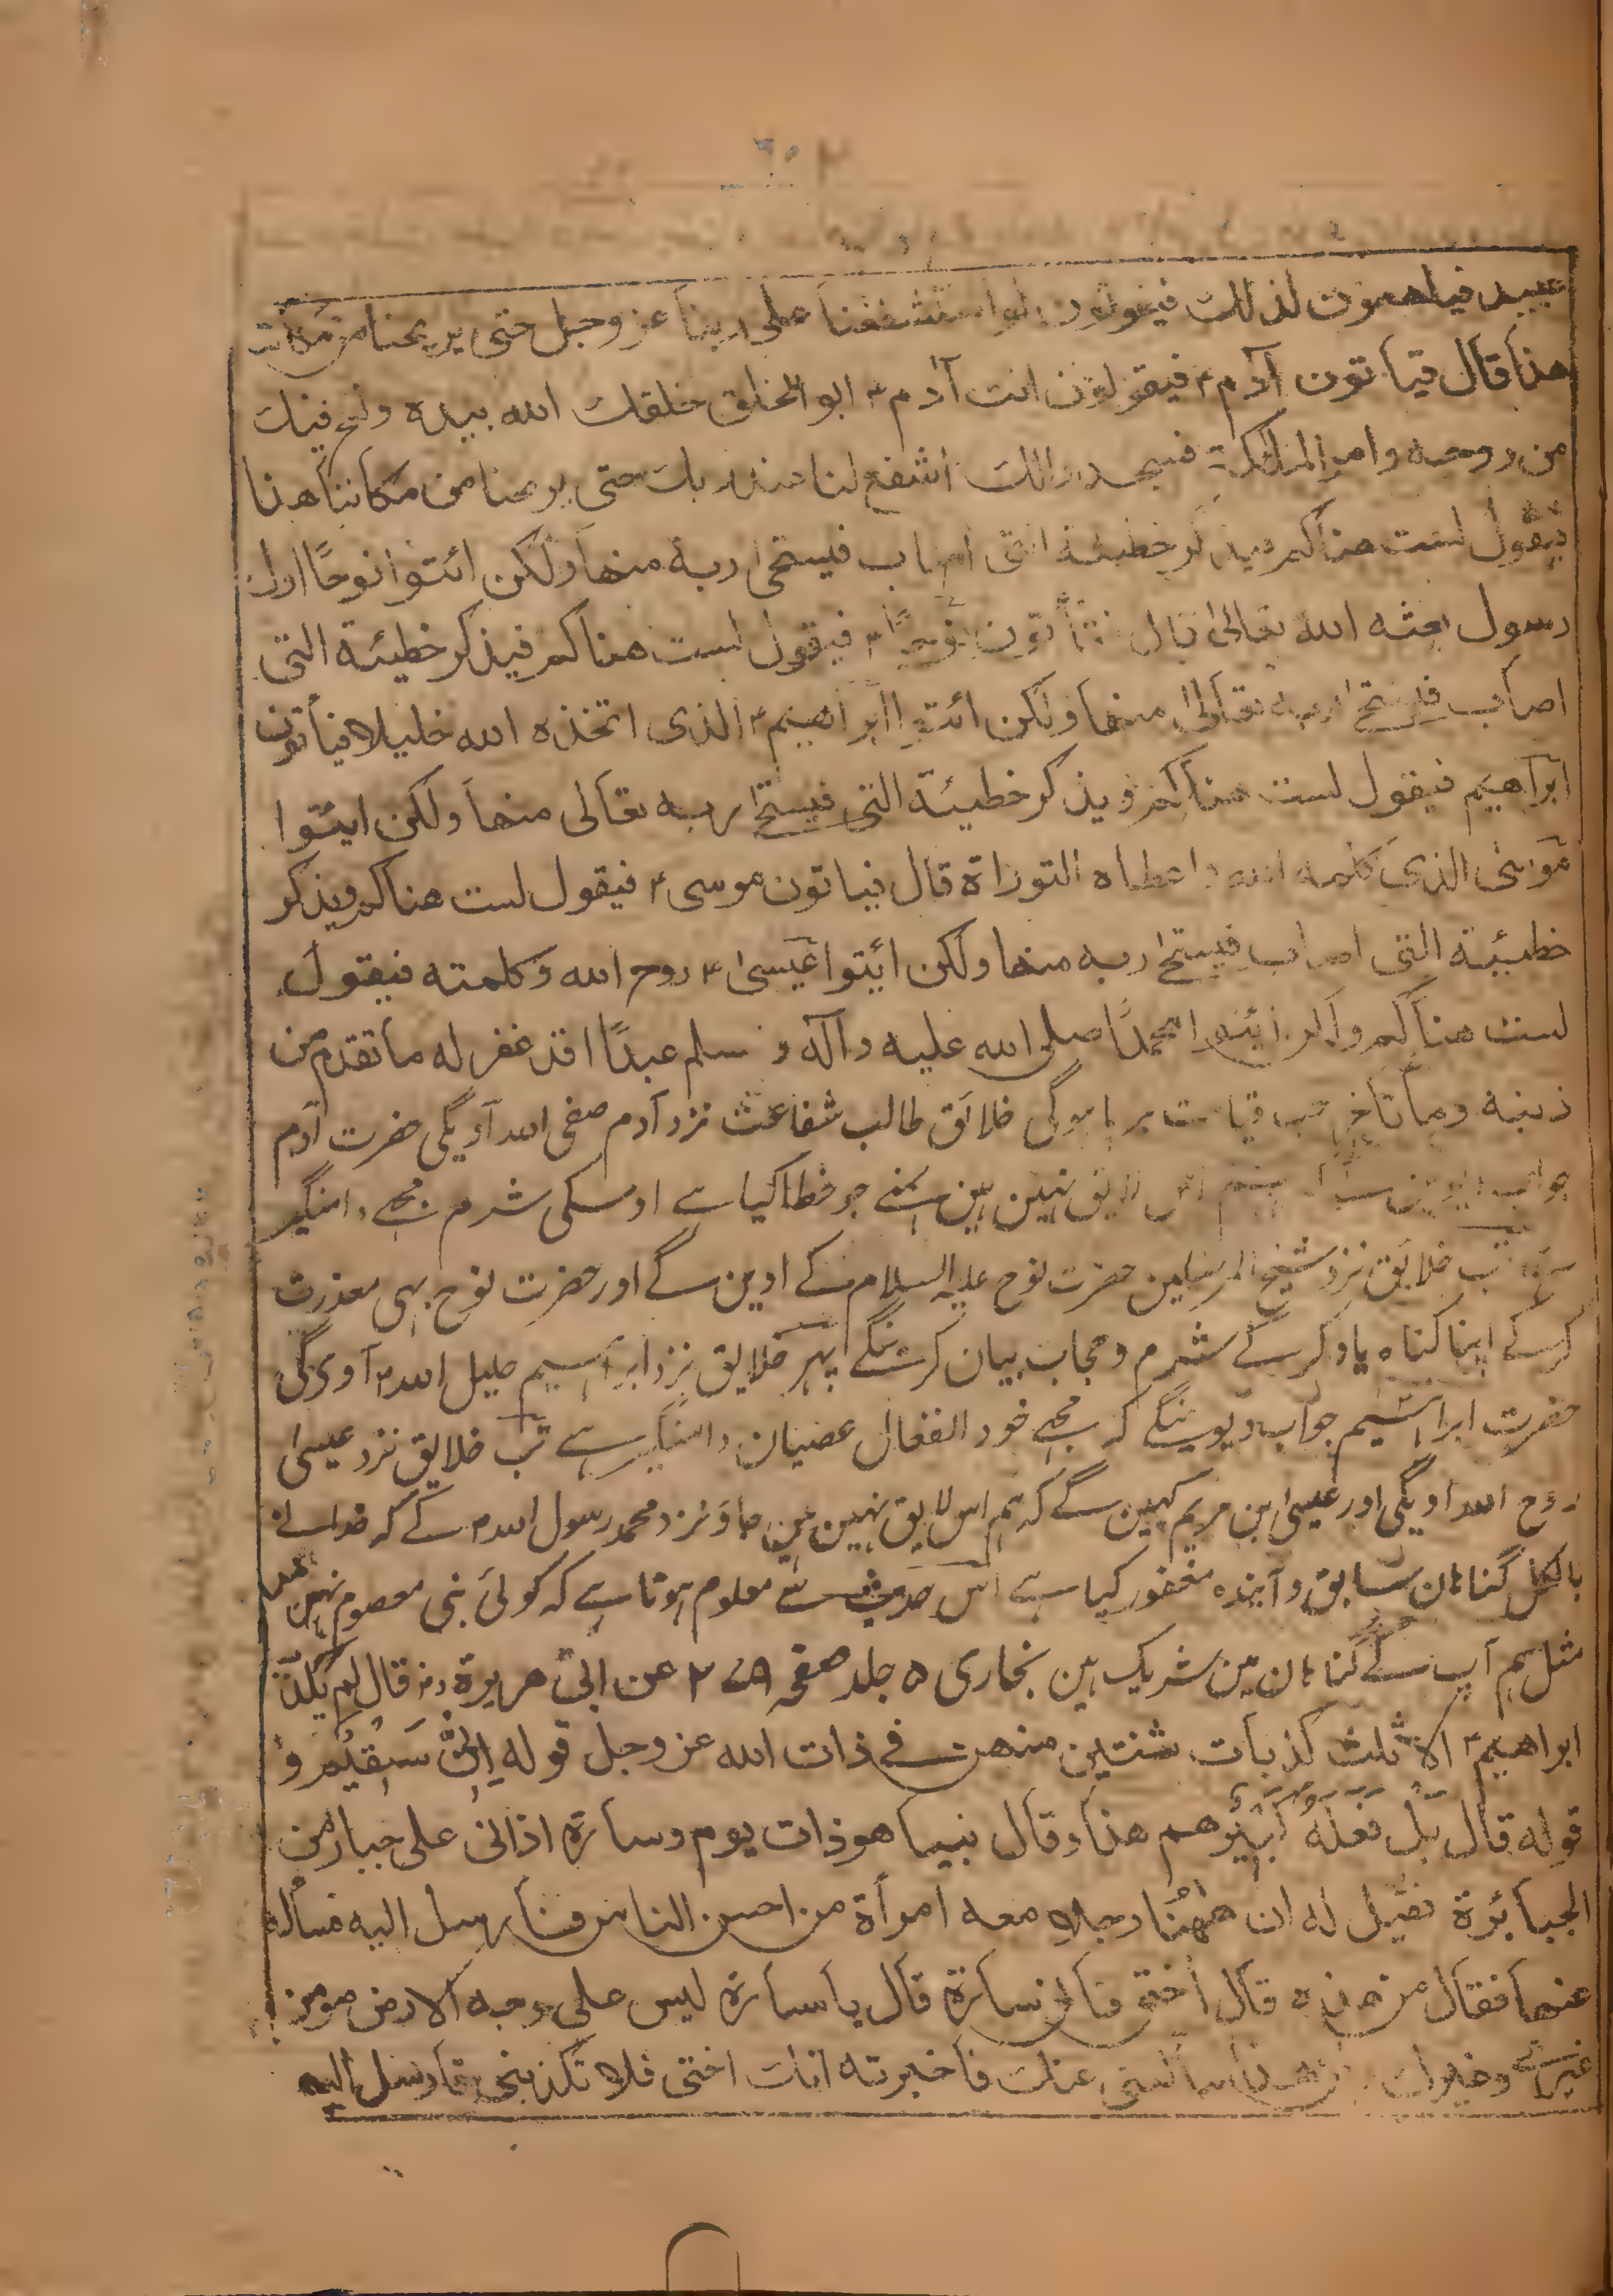 عبيد فيلهمون لذلك فيقولون لو استشفعنا على ربنا عز وجل حتى يريحنا من مكاننا
هذا قال فيأتون آدمؑ فيقولون انت آدمؑ ابو الخلق خلقك الله بيده ونفخ فيك
من روحه وامر الملئكة فسجدوا لك اشفع لنا عند ربك حتى يريحنا من مكاننا هذا
فيقول لست هناكم فيذكر خطيئة التى اصاب فيستحى ربه منها ولكن ائتوا نوحًا اول
رسول بعثه الله تعالىٰ قال فيأتون نوحًاؑ فيقول لست هناكم فيذكر خطيئة التى
اصاب فيستحى ربه تعالىٰ منها ولكن ائتوا ابراهيمؑ الذى اتخذه الله خليلا فيأتون
ابراهيم فيقول لست هناكم ويذكر خطيئة التى فيستحى ربه تعالى منها ولكن ايتوا
موسىٰ الذى كلمه الله واعطاه التوراة قال فياتون موسىؑ فيقول لست هناكم ويذكر
خطيئة التى اصاب فيستحى ربه منها ولكن ايتوا عيسىٰؑ روح الله وكلمته فيقول
لست هناكم ولكن ايتوا محمدًا صلى الله عليه وآله وسلم عبدًا قد غفر له ما تقدم من
ذنبه وما تاخر جب قیامت برپا ہوگی خلائق طالب شفاعت نزد آدم صفی اللہ آویگی حضرت آدم
جواب دیوین گے ہم اس لایق نہین ہین ہمنے جو خطا کیا ہے اوسکی شرم مجھے دامنگیر
ہے تب خلایق نزد شیخ المرسلین حضرت نوح علیہ السلام کے اوین گے اور حضرت نوح بہی معذرت
کرکے اپنا گناہ یاد کرکے شرم و حجاب بیان کرینگے پہر خلایق نزد ابراہیم خلیل اللہؑ آویگی
حضرت ابراہیم جواب دیوینگے کہ مجھے خود انفعال عصیان دامنگیر ہے تب خلایق نزد عیسیٰ
روح اللہ اویگی اور عیسیٰ ابن مریم کہین گے کہ ہم اس لایق نہین ہین جاؤ نزد محمد رسول اللہؐ کے کہ خدا نے
بالکل گناہان سابق و آیندہ مغفور کیا ہے اس حدیث سے معلوم ہوتا ہے کہ کوئی نبی معصوم نہین
مثل ہم آپ کے گناہان مین شریک ہین بخاری ۵ جلد صفحہ عن ابى هريرةؓ قال لم يكذب
ابراهيمؑ الا ثلث كذبات ثنتين منهن فى ذات الله عز وجل قوله اِنِّىْ سَقِيْمٌ و
قوله قال بَلْ فَعَلَهُ كَبِيْرُهم هذا وقال بينما هو ذات يوم وسارة اذ اتى على جبار من
الجبائرة فقيل له ان هٰهُنا رجلا معه امرأة من احسن الناس فأرسل اليه فسأله
عنها فقال من هذه قال اُختى فأتى سارة قال يا سارة ليس على وجه الارض مومن
غيرى وغيرك وان هذا سألنى عنك فاخبرته انك اختى فلا تكذبينى فارسل اليه